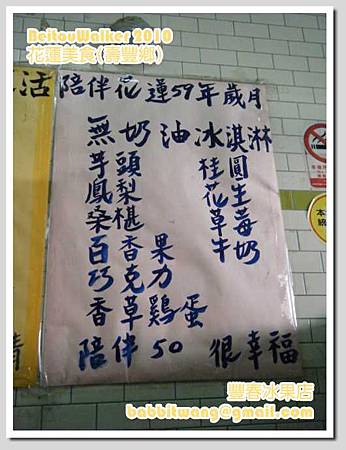 BeitouWalker 2010
花蓮美食(壽豐鄉)
活
陪伴花蓮59年歲月
無奶油冰淇淋
芋頭 桂圓
鳳梨 花生
桑椹 草莓
百香果 牛奶
巧克力
香草鷄蛋
陪伴50 很幸福
豐春冰果店
babbitwang@gmail.com